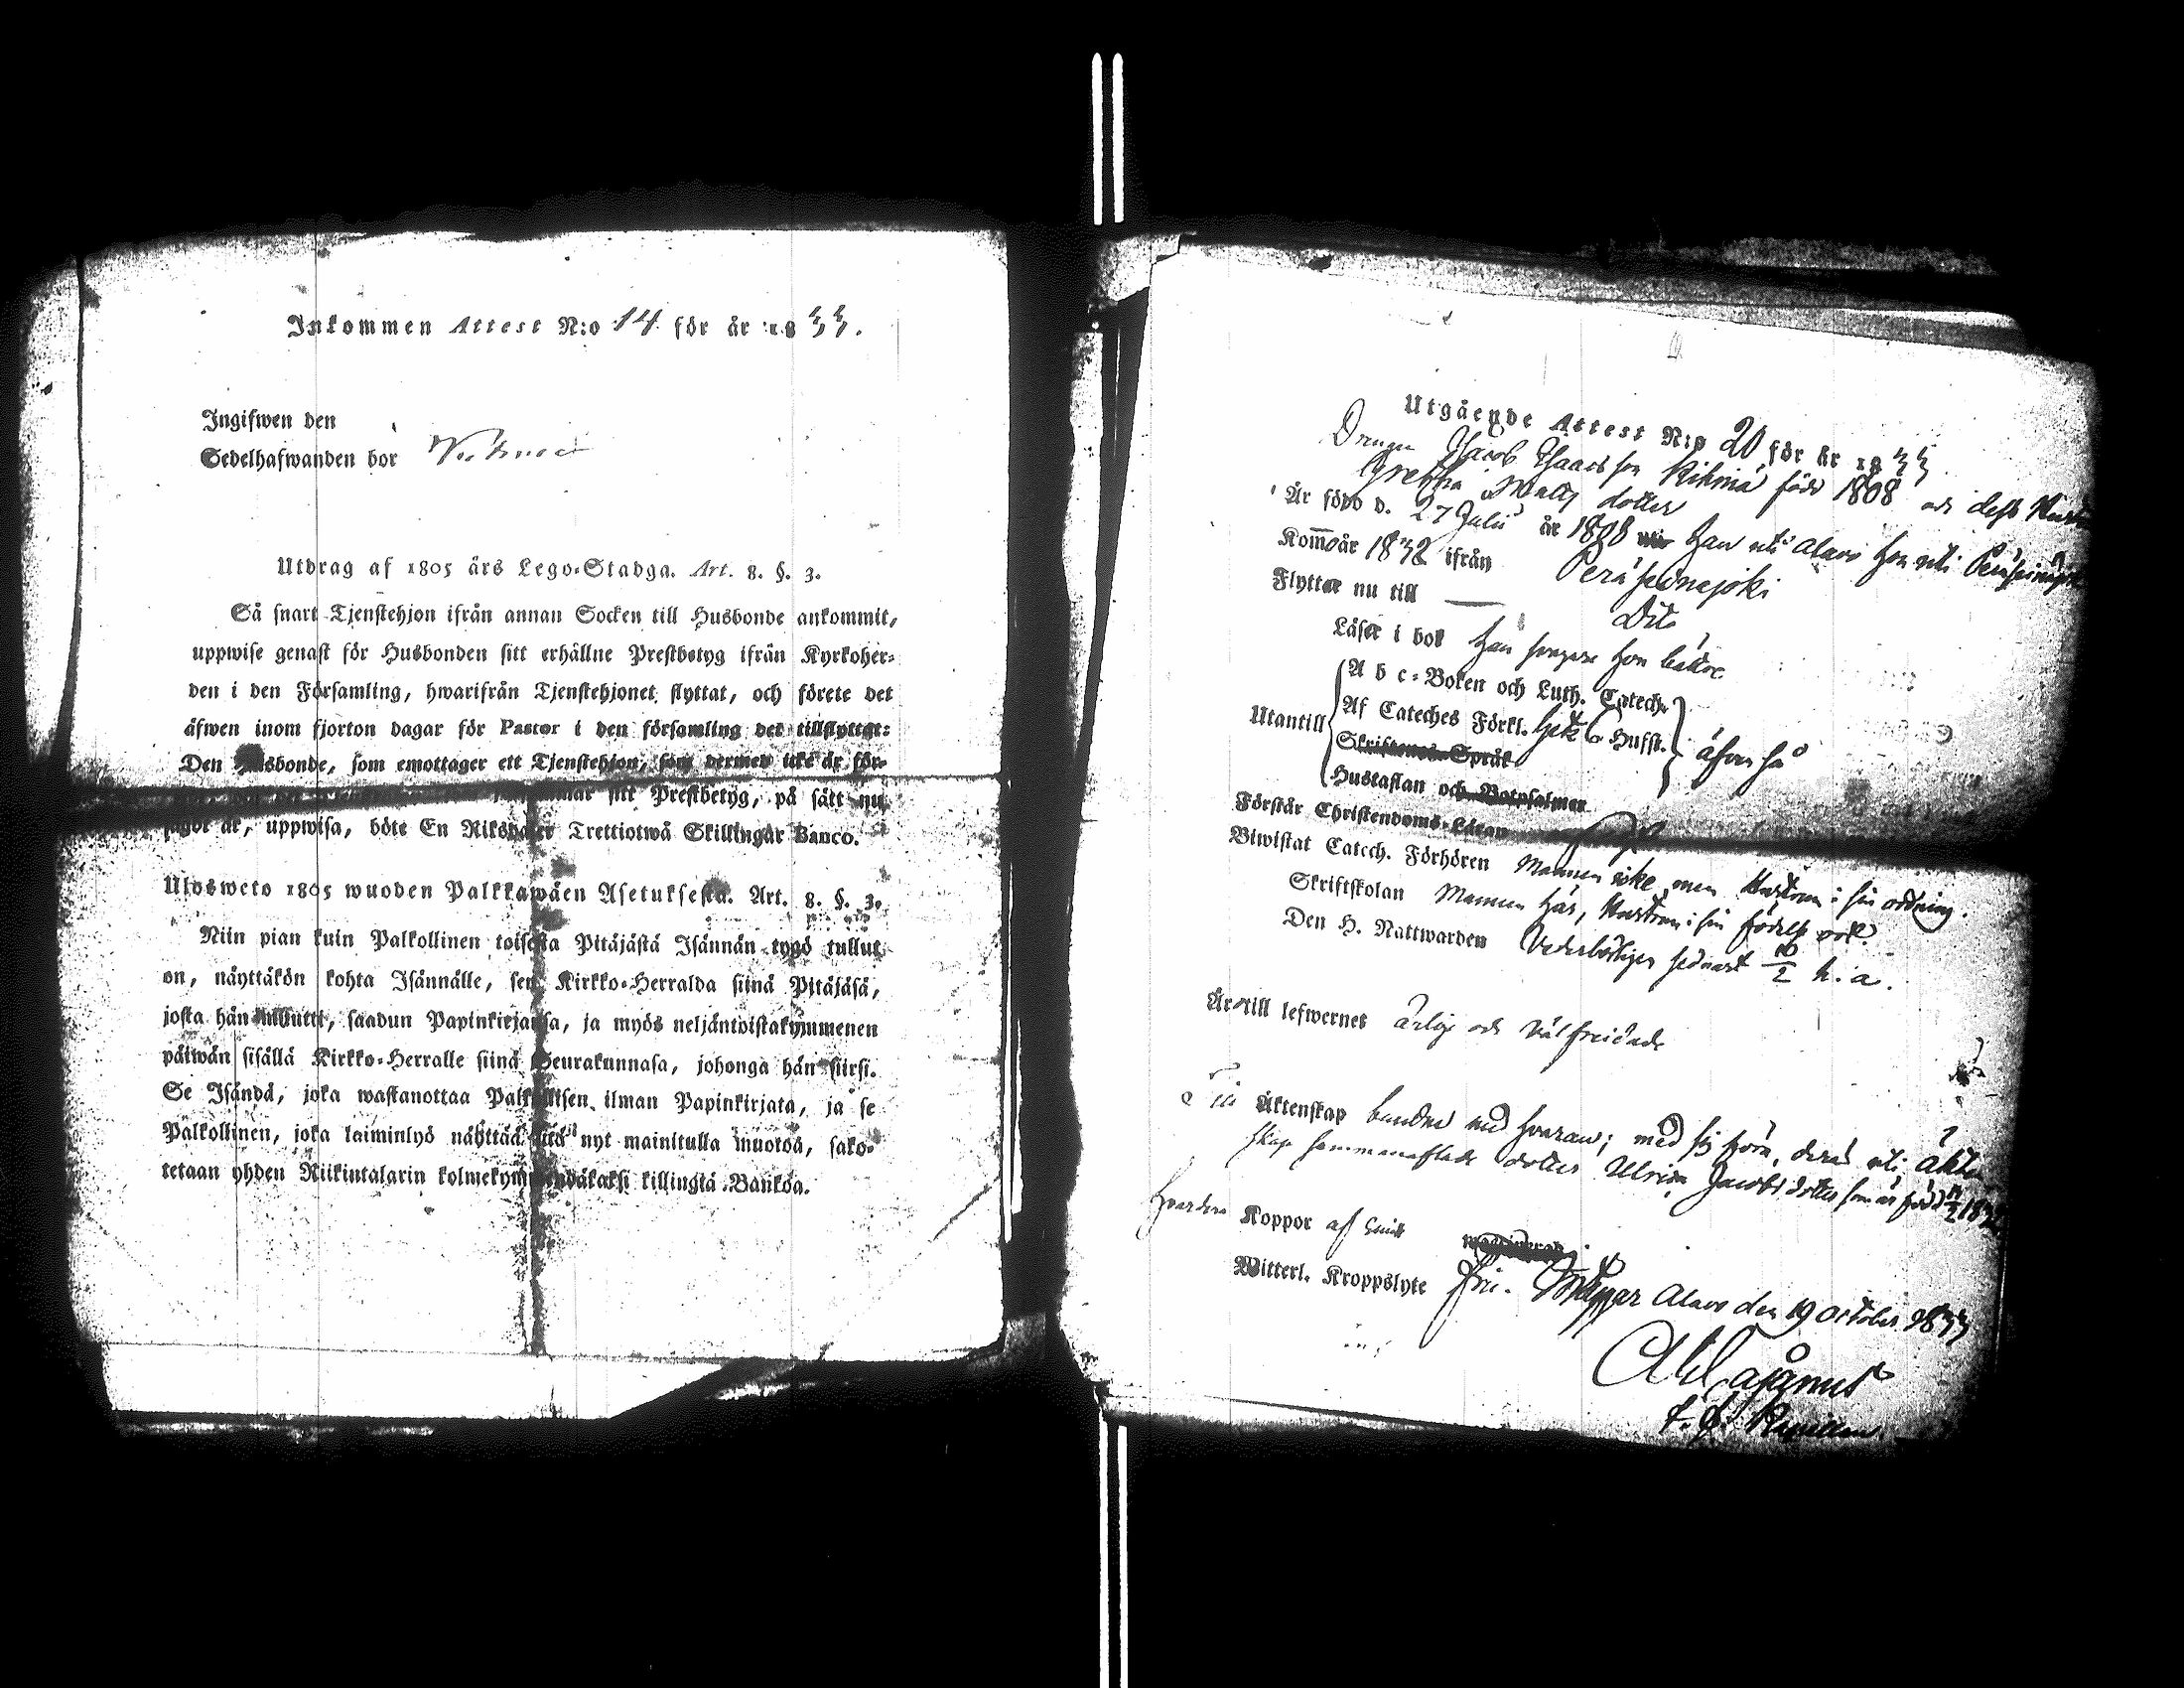 Inkommen Attest N:o 14 för år 1833.
Ingifwen den
Sedelhafwanden bor
Utdrag af 1805 års Lego-Stadga. Art. 8. §. 3.
Så snart Tjenstehjon ifrån annan Socken till Husbonde ankommit,
uppwise genast för Husbonden sitt erhållne Prestbetyg ifrån Kyrkoher-
den i den Församling, hwarifrån Tjenstehjonet flyttat, och förete det
äfwen inom fjorton dagar för Pastor i den församling det tillflyttat:
Den Husbonde, som emottager ett Tjenstehjon, som dermed icke är för-
sitt Prestbetyg, på sätt nu
sagdt är, uppwisa, böte En Riksdaler Trettiotwå Skillingar Banco.
Ulosweto 1805 wuoden Palkkawäen Asetuksesta. Art. 8. §. 3.
Niin pian kuin Palkollinen toisesta Pitäjästä Isännän tygö tullut
on, näyttäkön kohta Isännälle, sen Kirkko-Herralda siinä Pitäjäsä,
josta hän muutti, saadun Papinkirjansa, ja myös neljäntoistakymmenen
päiwän sisällä Kirkko-Herralle siinä Seurakunnasa, johonga hän siirsi.
Se Isändä, joka wastanottaa Palkollisen ilman Papinkirjata, ja se
Palkollinen, joka laiminlyö näyttää sitä nyt mainitulla muotoa, sako-
tetaan yhden Riikintalarin kolmekymmendäkaksi killingiä Bankoa.
Utgående Attest N:o 20 för år 1833
Drengen Jacob Isaacsson Rihimä född 1808 och dess Hustru
Gretha Matts dotter
Är född d. 27 Julii år 1808 han uti Alavo hon uti Peräseinäjoki
Kom år 1832 ifrån Peräseinäjoki
Flyttar nu till Dito
Läser i bok han svagare hon bättre
A b c-Boken och Luth. Catech.
Utantill Af Cateches Förkl. Hufst. äfven så
Skriftenes Språk
Hustaflan och Botpsalmer
Förstår Christendoms-Läran
Biwistat Catech. Förhören Mannen icke, men Hustrun i sin ordning.
Skriftskolan Mannen här, Hustrun i sin födelse ort.
Den H. Nattwarden sednast 10/2 h. a.
Är till lefwernet ärlige och välfreidade
Till Äktenskap bundne med hvaran; med sig föra, deras uti äkten-
skap sammanaflade dotter Ulrica Jacobsdotter som är född
Koppor af
Witterl. Kroppslyte fri. Alavo den 19 October 1833